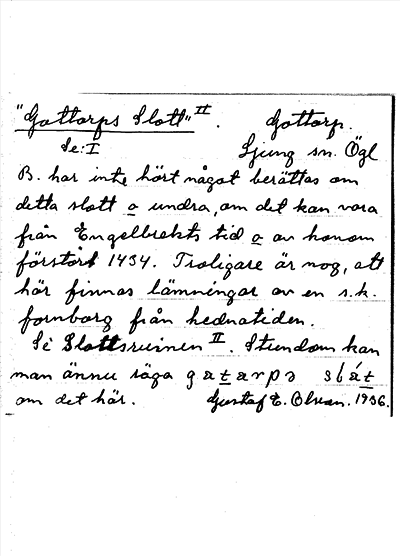 "Gottorps Slott" II. Gottorp.
Se: I Ljung sn. Ögl
B. har inte hört något berättas om
detta slott o undra, om det kan vara
från Engelbrekts tid o av honom
förstört 1434. Troligare är nog, att
här finnas lämningar av en s.k.
fornborg från hednatiden.
Se Slottsruinen II. Stundom kan
man ännu säga
om det här. Gustaf E. Olsson. 1936.